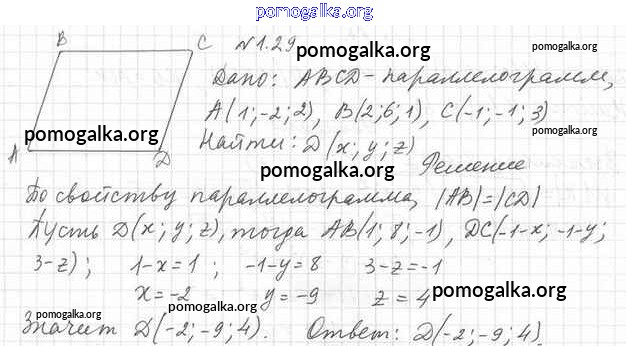 pomogalka.org
B C №1.29
pomogalka.org pomogalka.org
Дано: ABCD - параллелограмм,
A(1;-2;2), B(2;6;1), C(-1;-1;3)
pomogalka.org
Найти: D(x; y; z)
A D pomogalka.org
Решение
По свойству параллелограмма, |AB|=|CD|
Пусть D(x; y; z), тогда AB(1; 8; -1), DC(-1-x; -1-y;
3-z); 1-x=1; -1-y=8 3-z=-1
x=-2 y=-9 z=4 pomogalka.org
pomogalka.org pomogalka.org pomogalka.org
Значит D(-2;-9;4). Ответ: D(-2;-9;4).